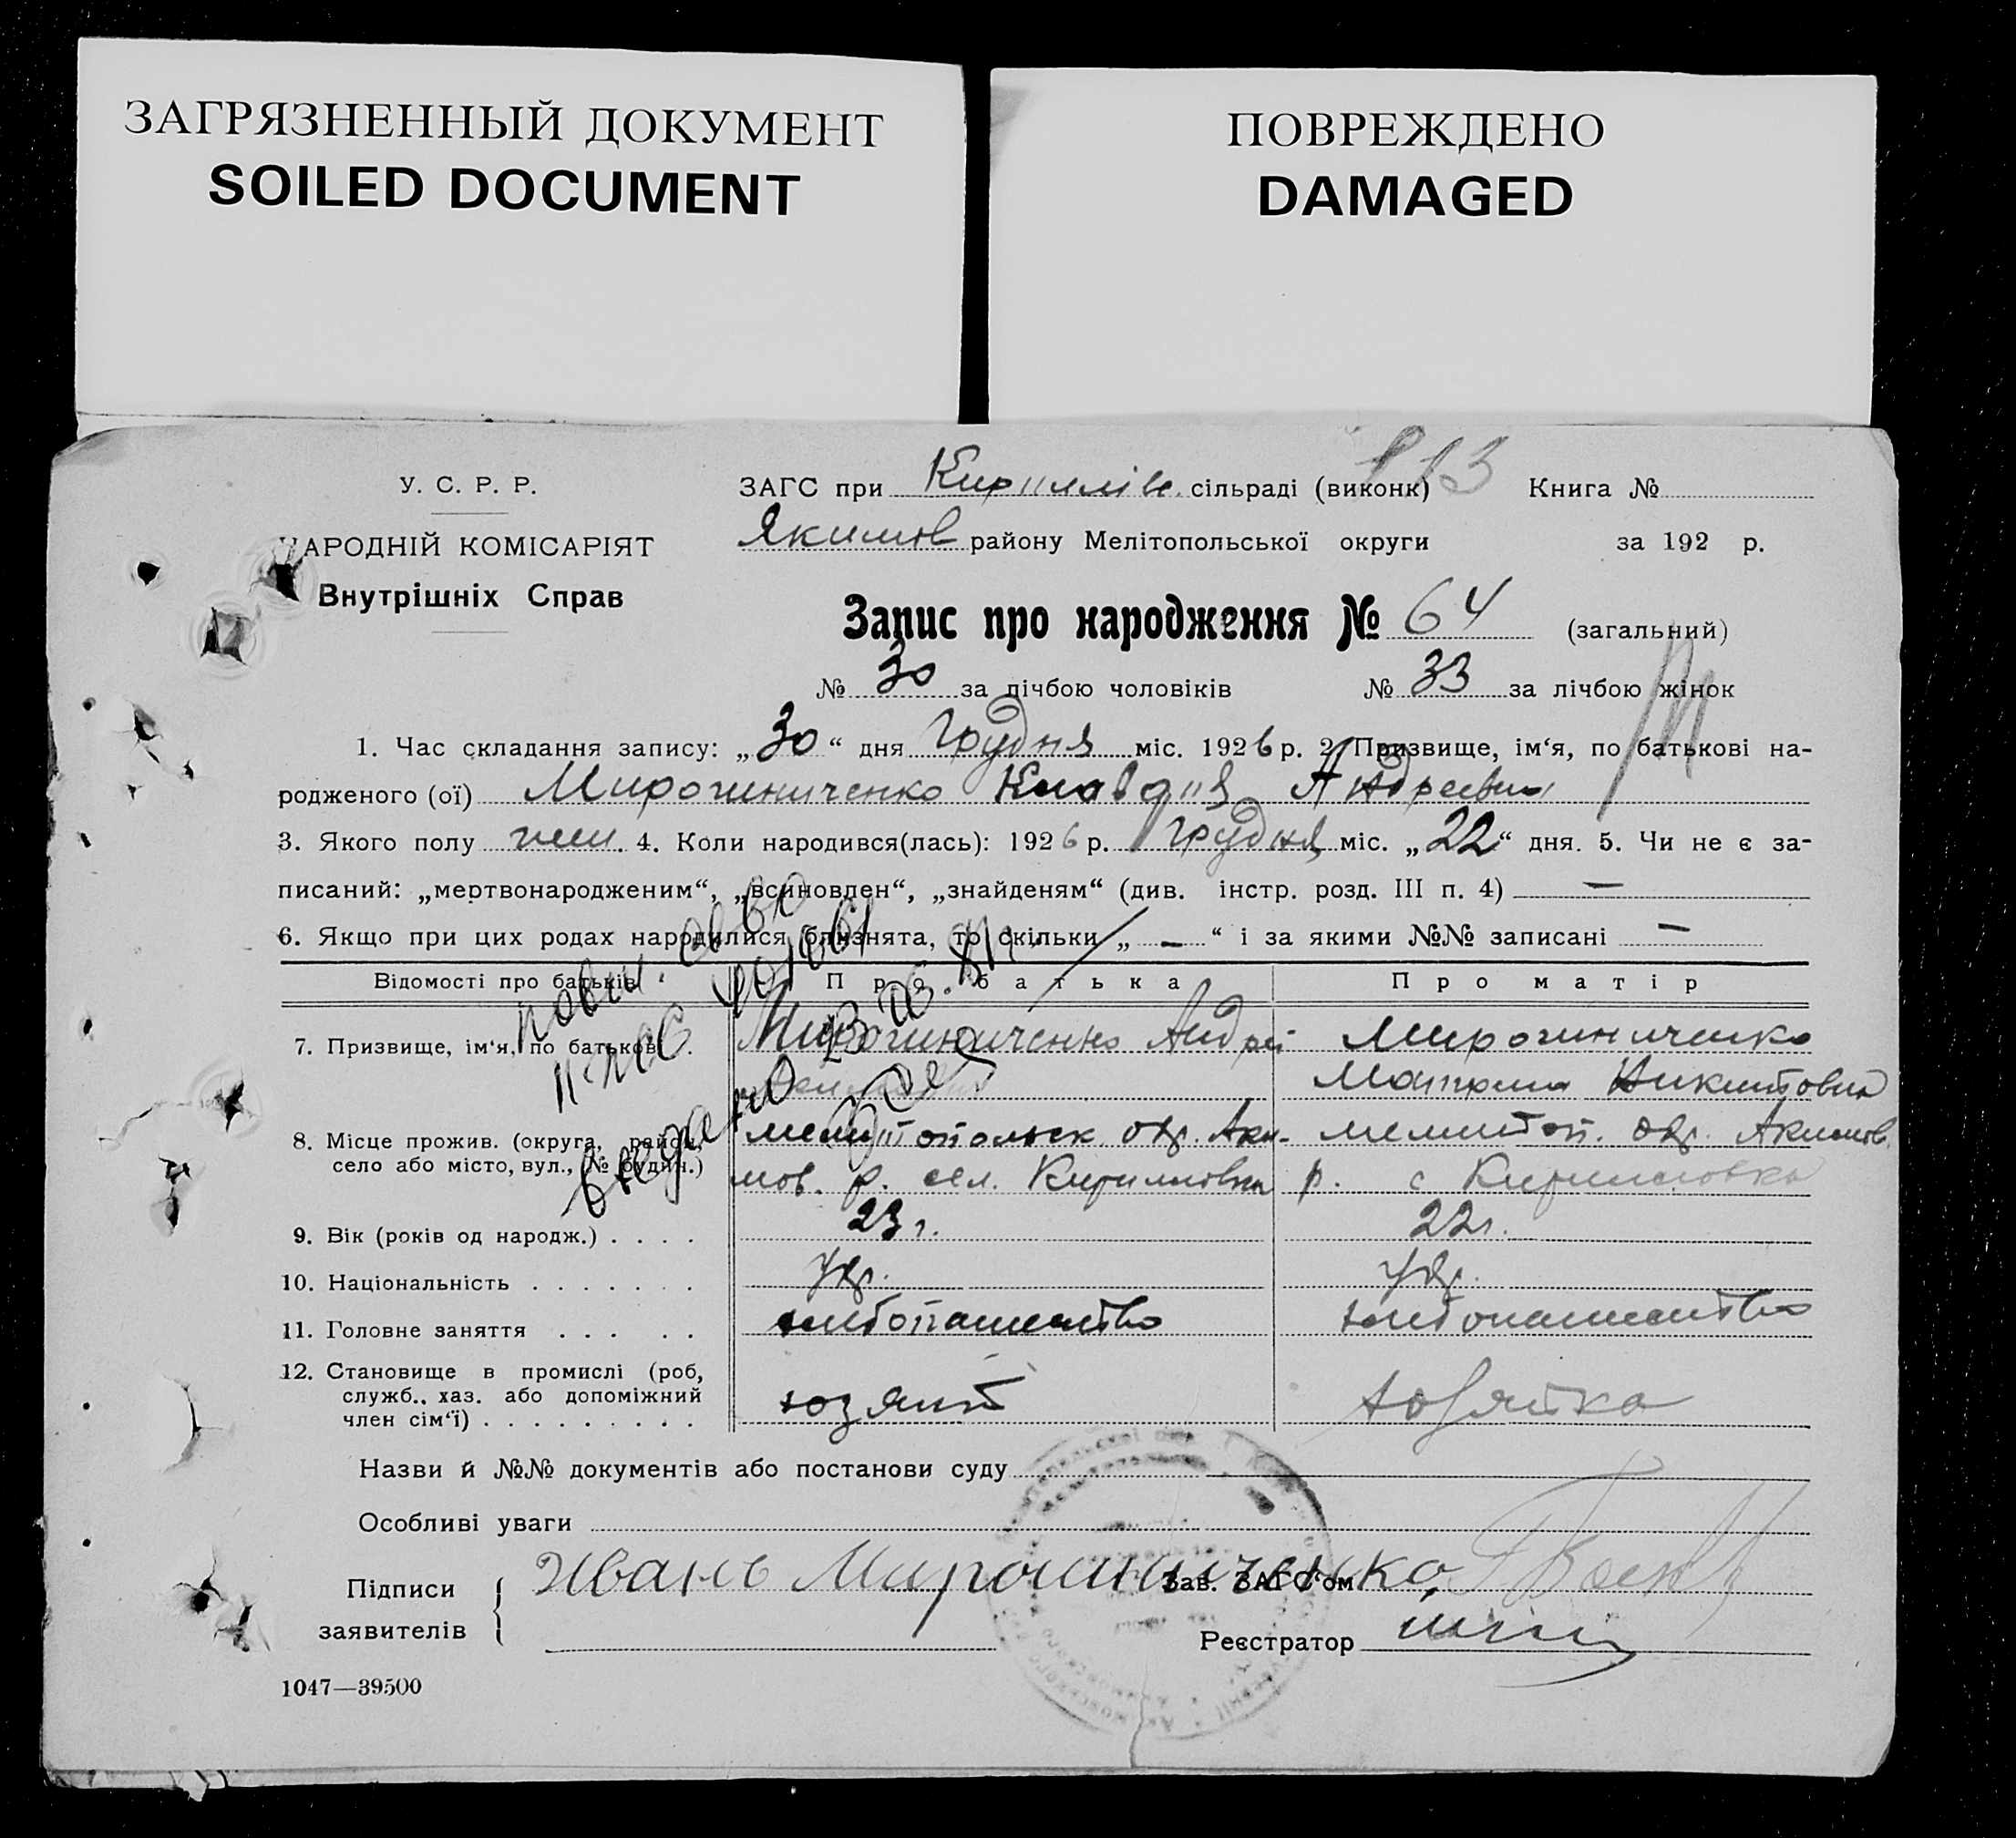 ЗАГРЯЗНЕННЫЙ ДОКУМЕНТ
SOILED DOCUMENT
ПОВРЕЖДЕНО
DAMAGED
У. С. Р. Р.
НАРОДНІЙ КОМІСАРІЯТ
Внутрішніх Справ
ЗАГС при Кириллів. сільраді (виконк) Книга №
Якимов району Мелітопольської округи за 192 р.
Запис про народження № 64 (загальний)
№ 30 за лічбою чоловіків № 33 за лічбою жінок
1. Час складання запису: „30“ дня Грудня міс. 1926 р. 2. Призвище, ім‘я, по батькові на-
родженого (ої) Мирошниченко Клавдия Андреевна
3. Якого полу жен. 4. Коли народився(лась): 1926 р. Грудня міс. „22“ дня. 5. Чи не є за-
писаний: „мертвонародженим“, „всиновлен“, „знайденям“ (див. інстр. розд. III п. 4) —
6. Якщо при цих родах народилися близнята, то скільки „—“ і за якими №№ записані —
Відомості про батьків Про батька Про матір
7. Призвище, ім‘я, по батькові . Мирошниченко Андрей Мирошниченко
Никитовна
8. Місце прожив. (округа, район, Мелитопольск окр. Аки- Мелитоп. окр. Акимов.
село або місто, вул., № будин.) мов. р. сел. Кирилловка р. с Кирилловка
9. Вік (років од народж.) . . . . 23 г. 22 г.
10. Національність . . . . . . . Укр. Укр.
11. Головне заняття . . . . . хлібопашество хлібопашество
12. Становище в промислі (роб,
служб., хаз. або допоміжний
член сім‘ї) . . . . . . . . . хозяин хозяйка
Назви й №№ документів або постанови суду
Особливі уваги
Підписи Иванъ Мирошниченко Зав. ЗАГС‘ом
заявителів Реєстратор
1047—39500